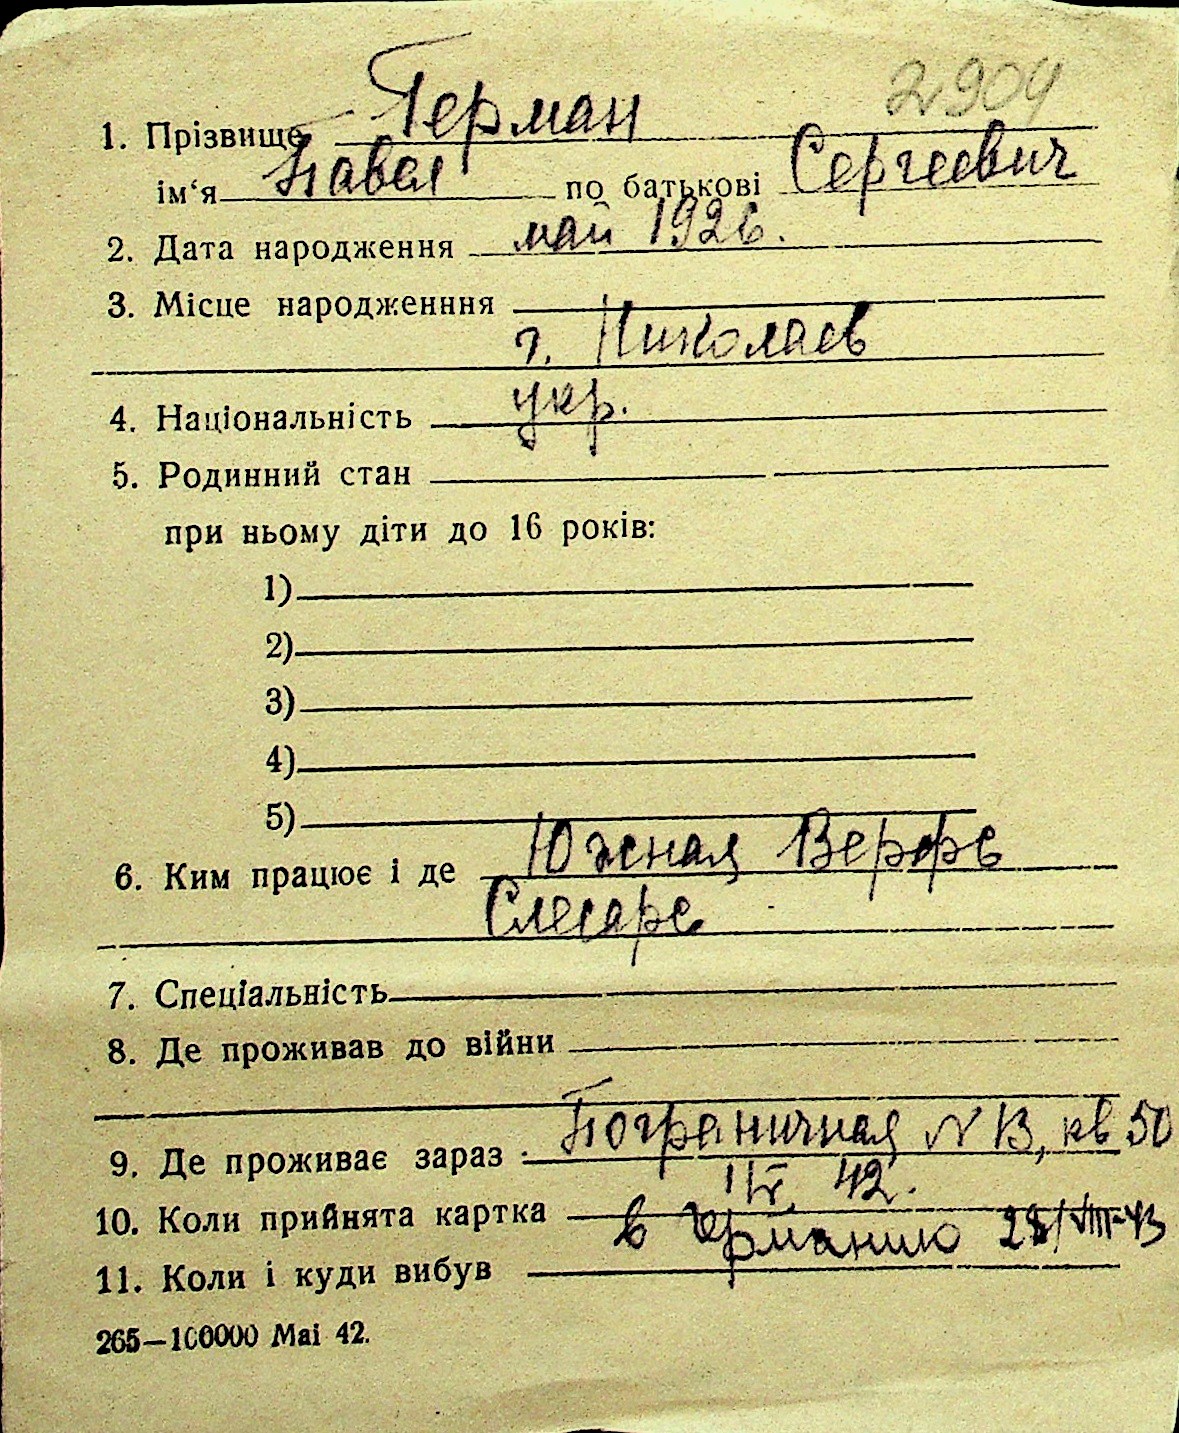 2904
1. Прізвище Герман
ім‘я Павел по батькові Сергеевич
2. Дата народження май 1926.
3. Місце народженння
г. Николаев
4. Національність укр.
5. Родинний стан
при ньому діти до 16 років:
1)
2)
3)
4)
5)
6. Ким працює і де Южная Верфь
Слесарь
7. Спеціальність
8. Де проживав до війни
9. Де проживає зараз Пограничная N 13, кв 50
10. Коли прийнята картка 42.
11. Коли і куди вибув в Германию 28/VIII-43
265—100000 Mai 42.